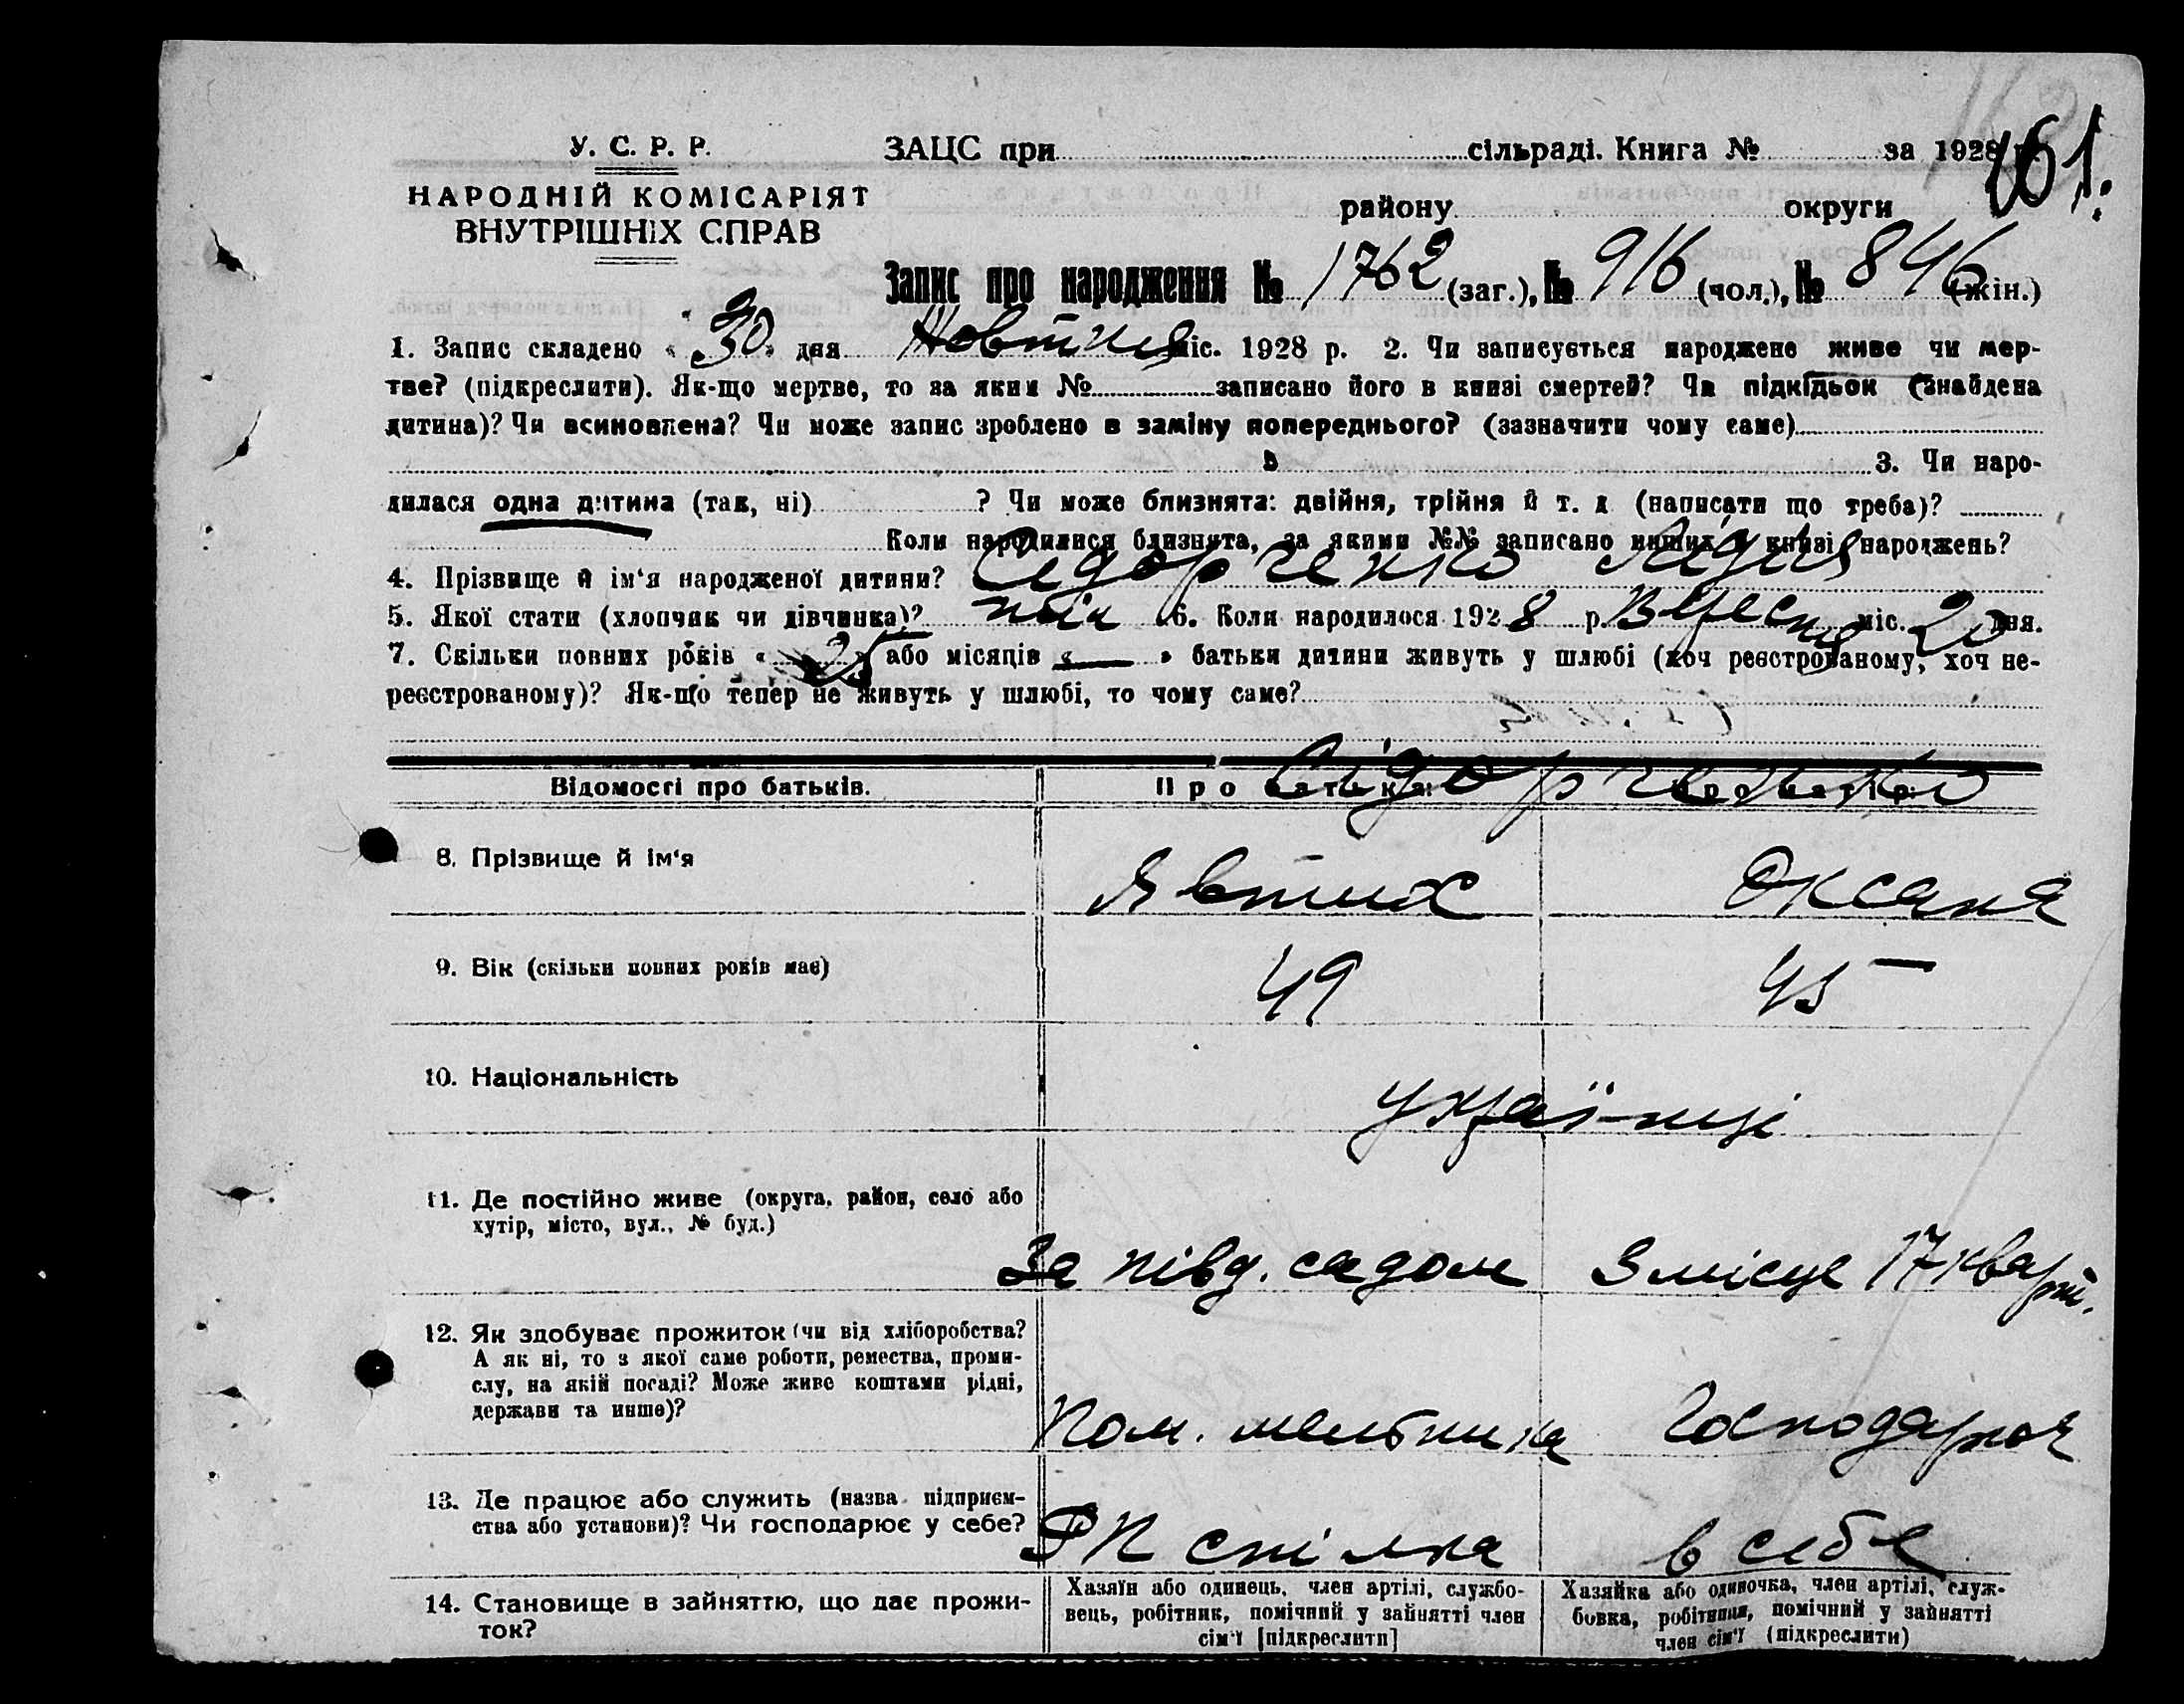 161.
У. С. Р. Р.
ЗАЦС при сільраді. Книга № за 1928 р.
НАРОДНІЙ КОМІСАРІЯТ
ВНУТРІШНІХ СПРАВ
району округи
Запис про народження № 1762 (заг.), № 916 (чол.), № 846 (жін.)
1. Запис складено « 30 » дня Жовтня міс. 1928 р. 2. Чи записується народжене живе чи мер-
тве? (підкреслити). Як-що мертве, то за яким № записано його в книзі смертей? Чи підкідьок (знайдена
дитина)? Чи всиновлена? Чи може запис зроблено в заміну попереднього? (зазначити чому саме)
3. Чи наро-
дилася одна дитина (так, ні) ? Чи може близнята: двійня, трійня й т. д. (написати що треба)?
Коли народилися близнята, за якими №№ записано инших у книзі народжень?
4. Прізвище й ім‘я народженої дитини? Сідорченко Лідія
5. Якої стати (хлопчик чи дівчинка)? 6. Коли народилося 1928 р. Вересня міс. 20 дня.
7. Скільки повних років « 25 » або місяців « — » батьки дитини живуть у шлюбі (хоч реєстрованому, хоч не-
реєстрованому)? Як-що тепер не живуть у шлюбі, то чому саме?
Відомості про батьків. Про батька: Про матір:
Сідорченко
8. Прізвище й ім‘я Явтих Оксана
9. Вік (скільки повних років має) 49 45
10. Національність Українці
11. Де постійно живе (округа, район, село або
хутір, місто, вул., № буд.)
За півд. садом 3 місце 17 кварт.
12. Як здобуває прожиток (чи від хліборобства?
А як ні, то з якої саме роботи, ремества, проми-
слу, на якій посаді? Може живе коштами рідні,
держави та инше)?
Пом. мельника Господарюя
13. Де працює або служить (назва підприєм-
ства або установи)? Чи господарює у себе?
спілка в себе
14. Становище в зайняттю, що дає прожи-
ток?
Хазяїн або одинець, член артілі, службо-
вець, робітник, помічний у зайнятті член
сім‘ї [підкреслити]
Хазяйка або одиночка, член артілі, служ-
бовка, робітниця, помічний у зайнятті
член сім‘ї (підкреслити)